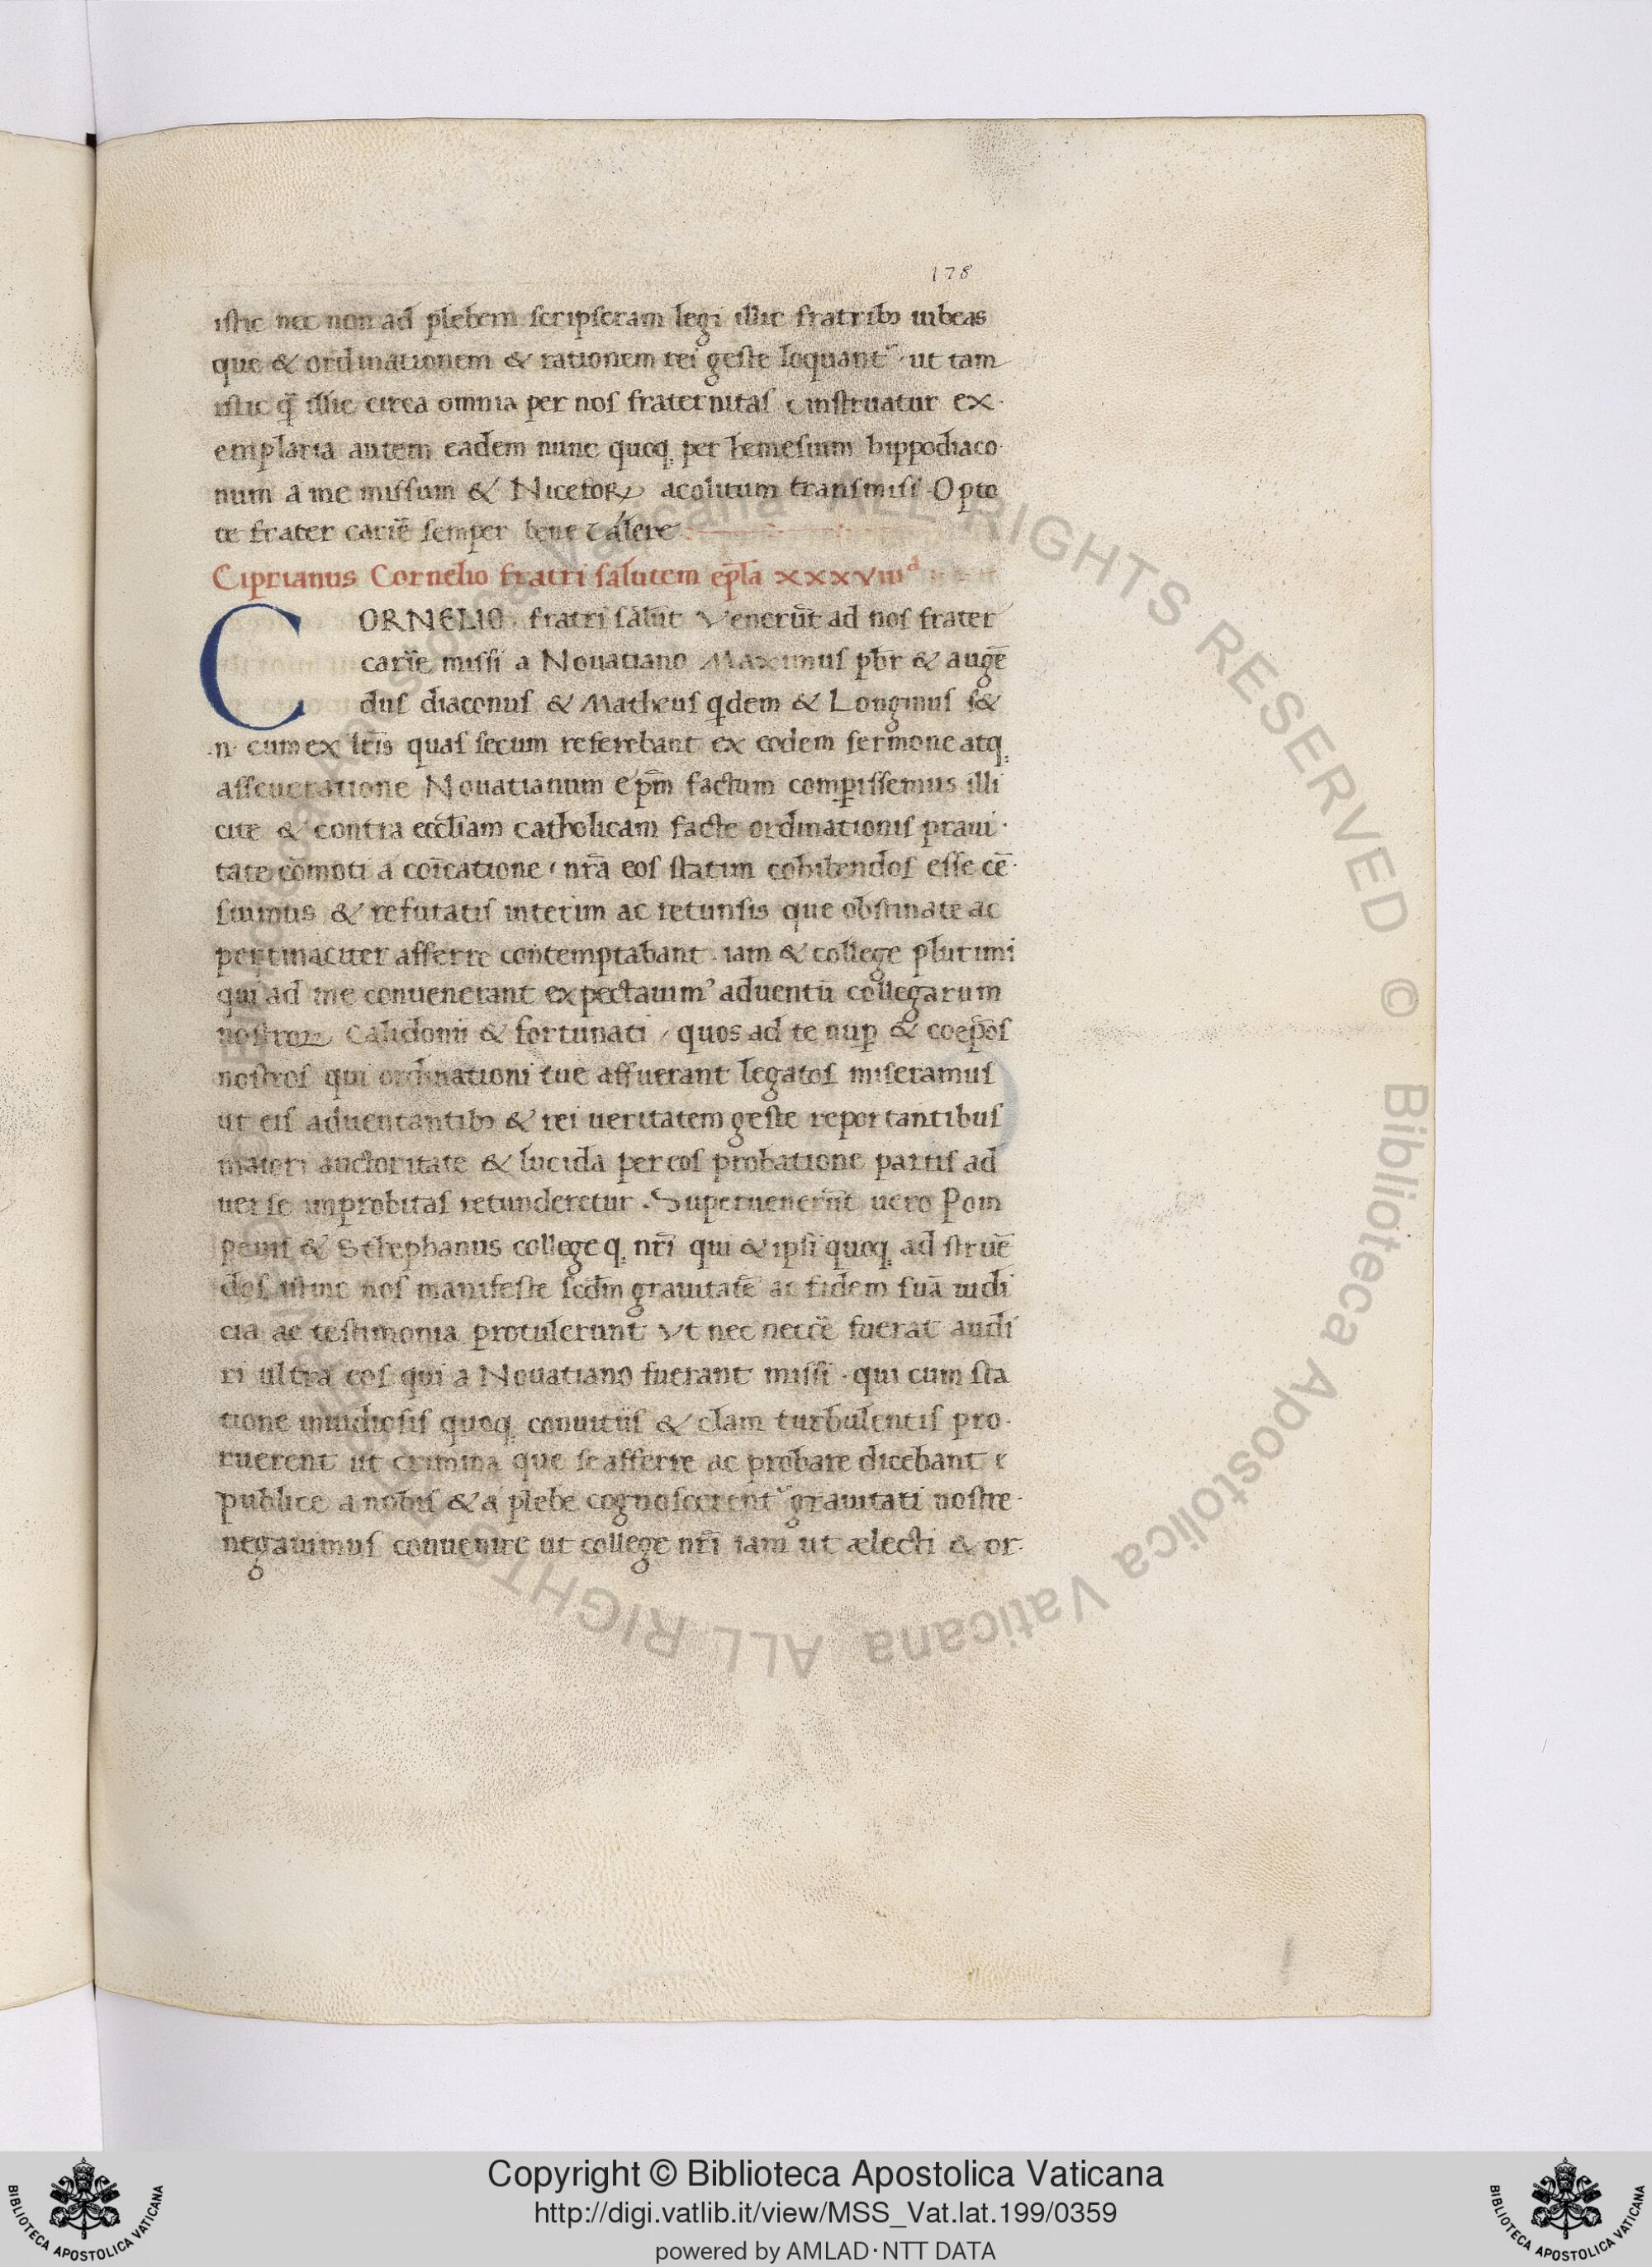 178
istic nec non ad plebem scripseram legi illic fratribꝫ iubeas
que & ordinationem & rationem rei geste loquant᷑ · ut tam
istic q̄ illic circa omnia per nos fraternitas instruatur ex·
emplaria autem eadem nunc quoqꝫ per hemesium hippodiaco·
num a me missum & Niceforꝫ acolitum transmisi · Opto
te frater carīe semper bene valere
Ciprianus Cornelio fratri salutem ep̄la xxxviiiᵃ
CORNELIO · fratri salūt Venerūt ad nos frater
carīe missi a Nouatiano Maximus pb̄r & augē
dus diaconus & Matheus qdem & Longinus s&
·n· cum ex lr̄is quas secum referebant ex eodem sermone atqꝫ
asseueratione Nouatianum ep̄m factum comperissemus illi
cite & contra eccl̄iam catholicam facte ordinationis praui·
tate cōmoti a coīcatione nr̄a eos statim cohibendos esse cē·
suimus & refutatis interim ac retunsis que obstinate ac
pertinaciter afferre contemptabant · iam & college plurimi
qui ad me conuenerant expectauim᾽ aduentū collegarum
nostroꝝ Calidonii & fortunati / quos ad te nuꝑ & coep̄os
nostros qui ordinationi tue affuerant legatos miseramus
ut eis aduentantibꝫ & rei ueritatem geste reportantibus
maiori auctoritate & lucida per eos probatione partis ad
uerse improbitas retunderetur · Superuenerūt uero Pom
peius & Stephanus college qꝫ nr̄i qui & ipsi quoqꝫ ad struē
dos istinc nos manifeste scd̄m grauitatē ac fidem suā indi
cia ac testimonia protulerunt Vt nec neccē fuerat audi
ri ultra eos qui a Nouatiano fuerant missi · qui cum sta
tione inuidiosis quoqꝫ conuitiis & clam turbulentis pro·
ruerent ut crimina que se afferre ac probare dicebant
publice a nobis & a plebe cognoscerent᷑ grauitati nostre·
negauimus conuenire ut college nr̄i iam ut ælecti & or·
© Biblioteca Apostolica Vaticana ALL RIGHTS RESERVED
Copyright © Biblioteca Apostolica Vaticana
http://digi.vatlib.it/view/MSS_Vat.lat.199/0359
powered by AMLAD·NTT DATA
BIBLIOTECA APOSTOLICA VATICANA
BIBLIOTECA APOSTOLICA VATICANA